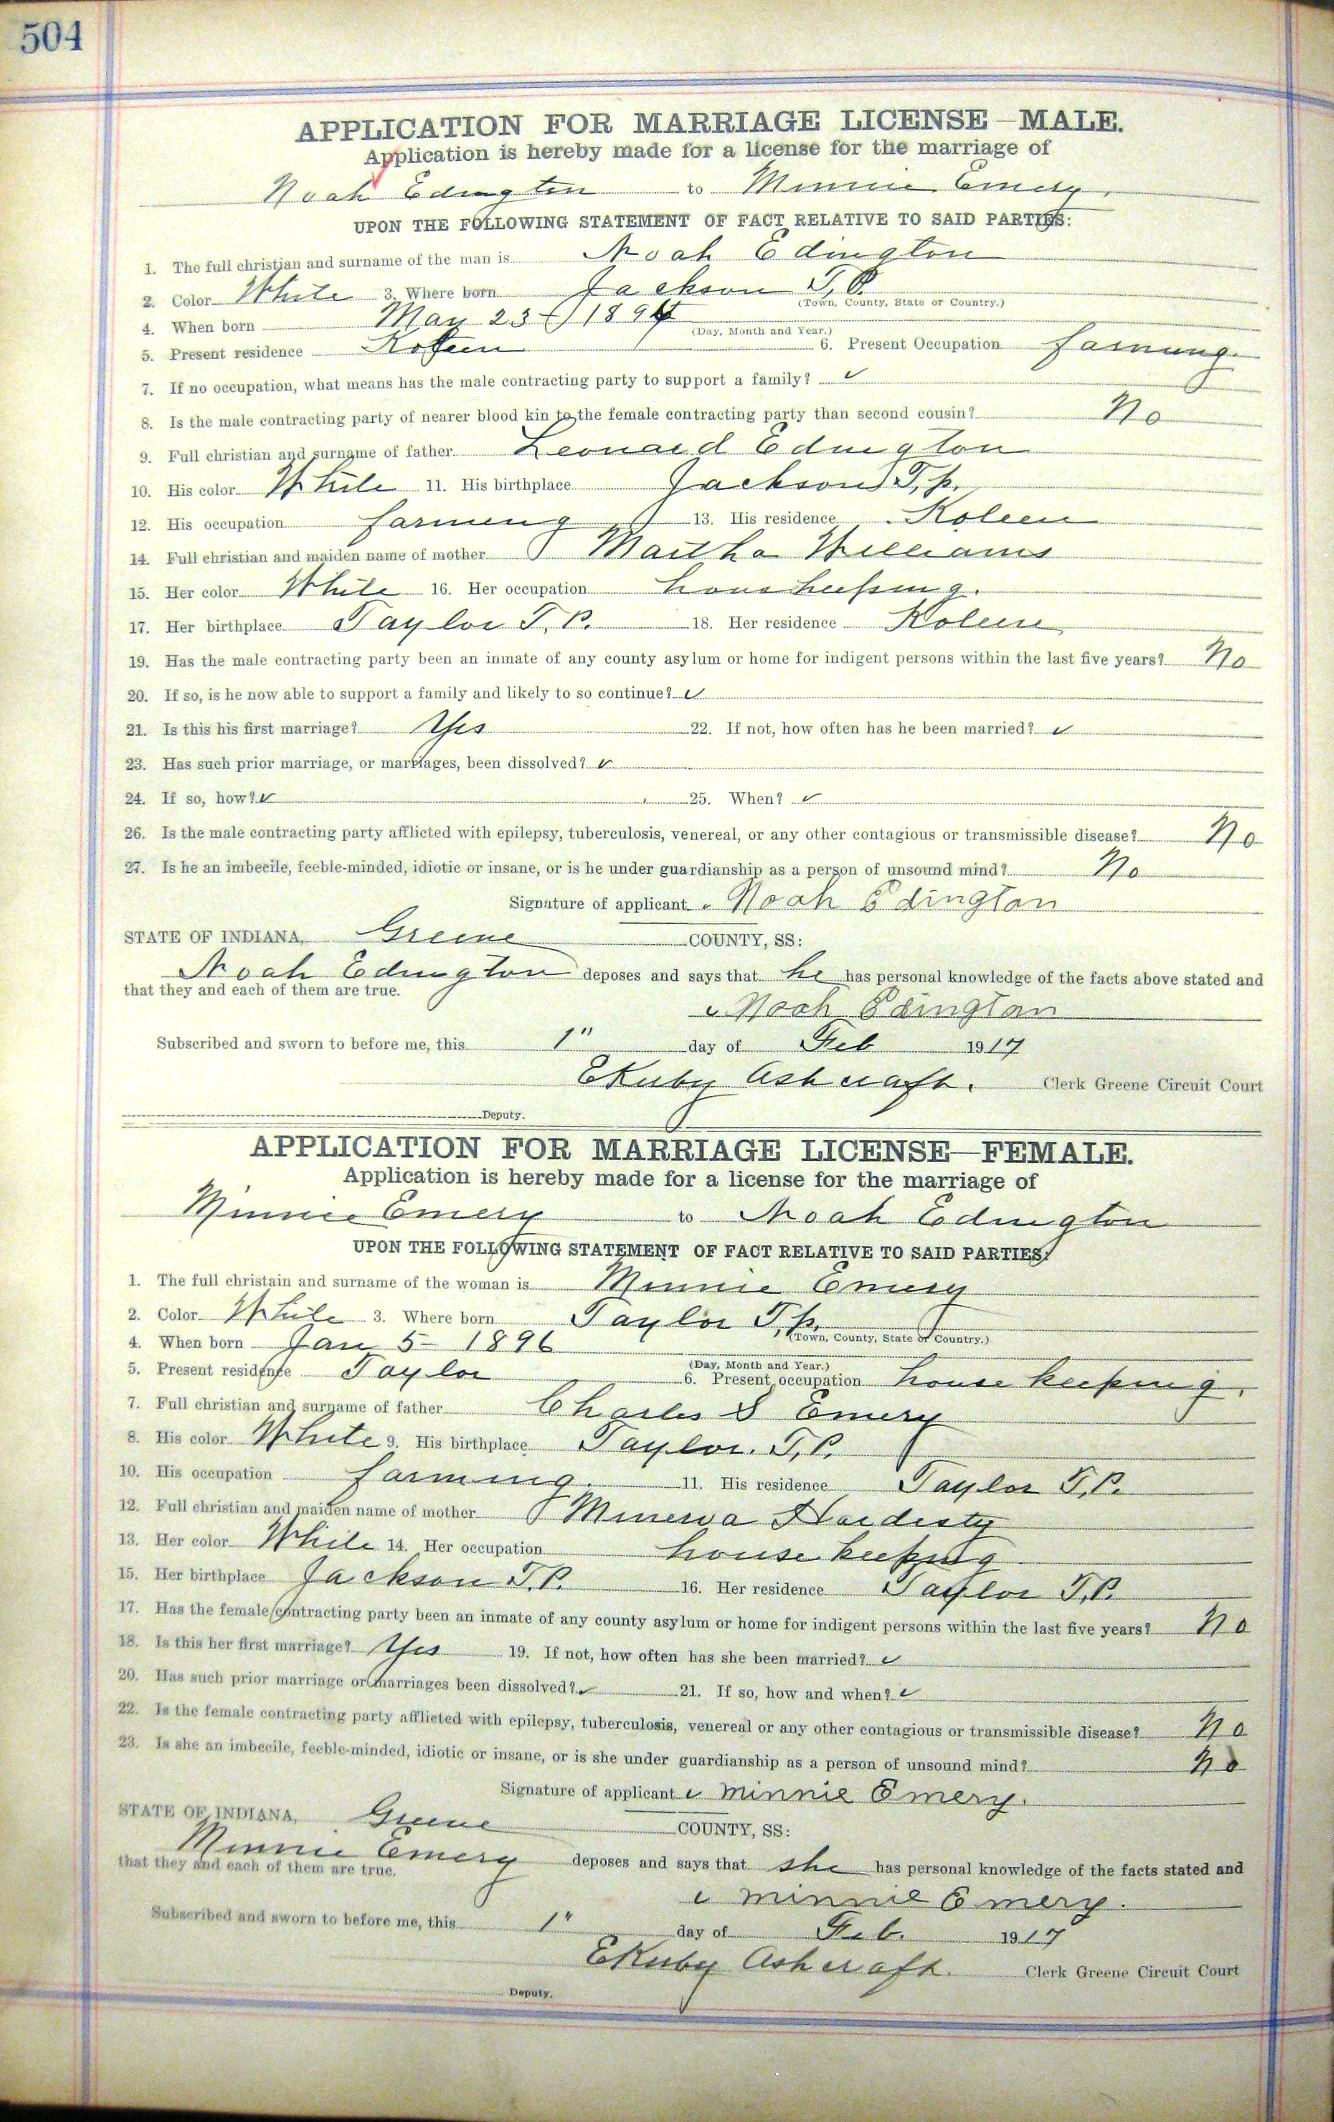 504
APPLICATION FOR MARRIAGE LICENSE—MALE.
Application is hereby made for a license for the marriage of
Noah Edington to Minnie Emery,
UPON THE FOLLOWING STATEMENT OF FACT RELATIVE TO SAID PARTIES:
1. The full christian and surname of the man is Noah Edington
2. Color White 3. Where born Jackson T,P.
(Town, County, State or Country.)
4. When born May 23 - 1894
(Day, Month and Year.)
5. Present residence Koleen 6. Present Occupation farming.
7. If no occupation, what means has the male contracting party to support a family? ✓
8. Is the male contracting party of nearer blood kin to the female contracting party than second cousin? No
9. Full christian and surname of father Leonard Edington
10. His color White 11. His birthplace Jackson T,p.
12. His occupation farming 13. His residence Koleen
14. Full christian and maiden name of mother Martha Williams
15. Her color White 16. Her occupation houskeeping.
17. Her birthplace Taylor T.P. 18. Her residence Koleen,
19. Has the male contracting party been an inmate of any county asylum or home for indigent persons within the last five years? No
20. If so, is he now able to support a family and likely to so continue? ✓
21. Is this his first marriage? Yes 22. If not, how often has he been married? ✓
23. Has such prior marriage, or marriages, been dissolved? ✓
24. If so, how? ✓ 25. When? ✓
26. Is the male contracting party afflicted with epilepsy, tuberculosis, venereal, or any other contagious or transmissible disease? No
27. Is he an imbecile, feeble-minded, idiotic or insane, or is he under guardianship as a person of unsound mind? No
Signature of applicant Noah Edington
STATE OF INDIANA, Greene COUNTY, SS:
Noah Edington deposes and says that he has personal knowledge of the facts above stated and
that they and each of them are true.
Noah Edington
Subscribed and sworn to before me, this 1" day of Feb 1917
E Kirby Ashcraft. Clerk Greene Circuit Court
Deputy.
APPLICATION FOR MARRIAGE LICENSE—FEMALE.
Application is hereby made for a license for the marriage of
Minnie Emery to Noah Edington
UPON THE FOLLOWING STATEMENT OF FACT RELATIVE TO SAID PARTIES:
1. The full christain and surname of the woman is Minnie Emery
2. Color White 3. Where born Taylor T,p.
(Town, County, State or Country.)
4. When born Jan 5 - 1896
(Day, Month and Year.)
5. Present residence Taylor 6. Present occupation house keeping.
7. Full christian and surname of father Charles S Emery
8. His color White 9. His birthplace Taylor. T,P.
10. His occupation farming. 11. His residence Taylor T,P.
12. Full christian and maiden name of mother Minerva Hardesty
13. Her color White 14. Her occupation house keeping
15. Her birthplace Jackson T.P. 16. Her residence Taylor T,P.
17. Has the female contracting party been an inmate of any county asylum or home for indigent persons within the last five years? No
18. Is this her first marriage? Yes 19. If not, how often has she been married? ✓
20. Has such prior marriage or marriages been dissolved? ✓ 21. If so, how and when? ✓
22. Is the female contracting party afflicted with epilepsy, tuberculosis, venereal or any other contagious or transmissible disease? No
23. Is she an imbecile, feeble-minded, idiotic or insane, or is she under guardianship as a person of unsound mind? No
Signature of applicant Minnie Emery.
STATE OF INDIANA, Greene COUNTY, SS:
Minnie Emery deposes and says that she has personal knowledge of the facts stated and
that they and each of them are true.
Minnie Emery.
Subscribed and sworn to before me, this 1" day of Feb. 1917
E Kirby Ashcraft. Clerk Greene Circuit Court
Deputy.